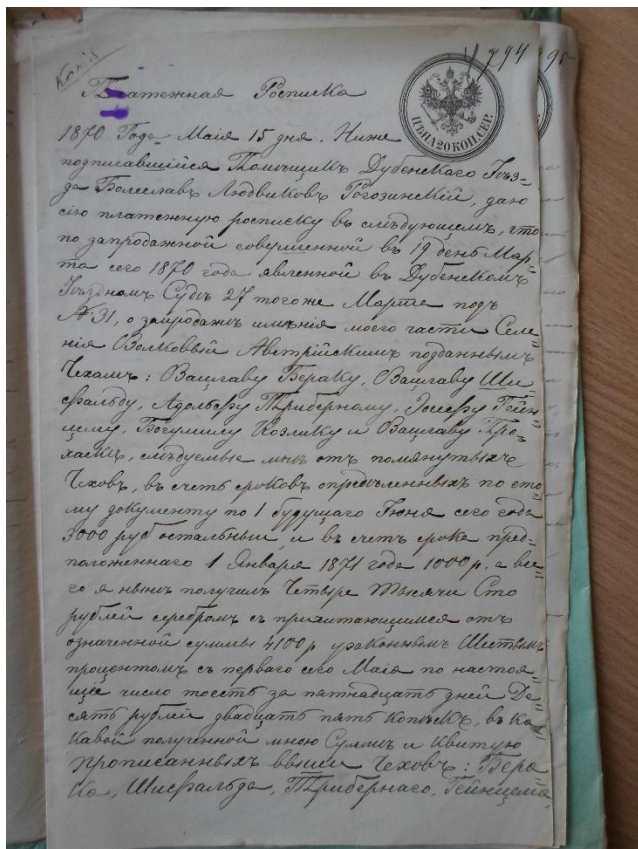 Копія
4794 95
Платежная Росписка
ЦѢНА 20 КОП. СЕР.
1870 Года Маія 15 дня. Ниже
подписавшійся Помѣщикъ Дубенскаго Уѣз=
да Болеславъ Людвиковъ Рогозинскій, даю
сію платежную росписку въ слѣдующемъ, что
по запродажной совершенной въ 19 день Мар=
та сего 1870 года явленной въ Дубенскомъ
Уѣздномъ Судѣ 27 тогоже Марта подъ
№ 31, о запродажѣ имѣнія моего части Селе=
нія Волковый Австрійскимъ подданнымъ
Чехамъ: Вацлаву Бераку, Вацлаву Ши=
сфальду, Адольфу Триберному, Іосефу Гейн=
цему, Богумилу Козлику и Вацлаву Про=
хаскѣ, слѣдуемые мнѣ отъ помянутыхъ
Чеховъ, въ счетъ сроковъ опредѣленныхъ по сто=
му документу по 1 будущаго Іюня сего года
3000 руб остальные, и въ счетъ срока пред=
положеннаго 1 Января 1871 года 1000 р. а все=
го я нынѣ получилъ Четыре тысячи Сто
рублей серебромъ съ причитающимся отъ
означенной суммы 4100 р узаконнымъ Шестымъ
процентомъ съ перваго сего Маія по настоя=
щее число тоесть за пятнадцать дней Де=
сять рублей двадцать пять копѣекъ, въ ка=
кавой полученной мною Суммѣ и Квитую
прописанныхъ ввыш Чеховъ: Бера=
ка, Шисфальда, Трибернаго, Гейнцема,